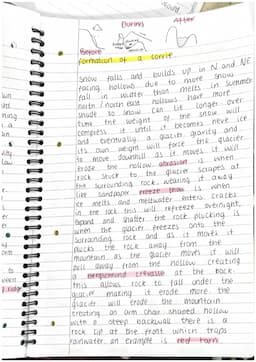 During
After
Before
formation of a corrie
Snow falls and builds up in N and NE
facing hollows due to more snow
fall in winter than melts in summer
north / north east hollows have more
shade so snow can lie longer. over
time the weight of the snow will
compress it until it becomes neve ice
and eventually a glacier gravity and
its own weight will force the glacier
to move downhill as it moves it will
erode the hollow. abrasion is when
rock stuck to the glacier scrapes at
the surrounding rock wearing it away
like sandpaper freeze thaw is when
ice melts and meltwater enters cracks
in the rock this will refreeze overnight,
expand and shatter the rock plucking is
when the glacier freezes onto the
surrounding rock and as it moves it
plucks the rock away from the
mountain as the glacier moves it will
pull away from the hollow creating
a bergschrund crevasse at the back.
this allows rock to fall under the
glacier making it erode more the
glacier will erode the mountain
creating an arm chair shaped hollow
with a steep backwall there is a
rock lip at the front which traps
rainwater an example is red tarn